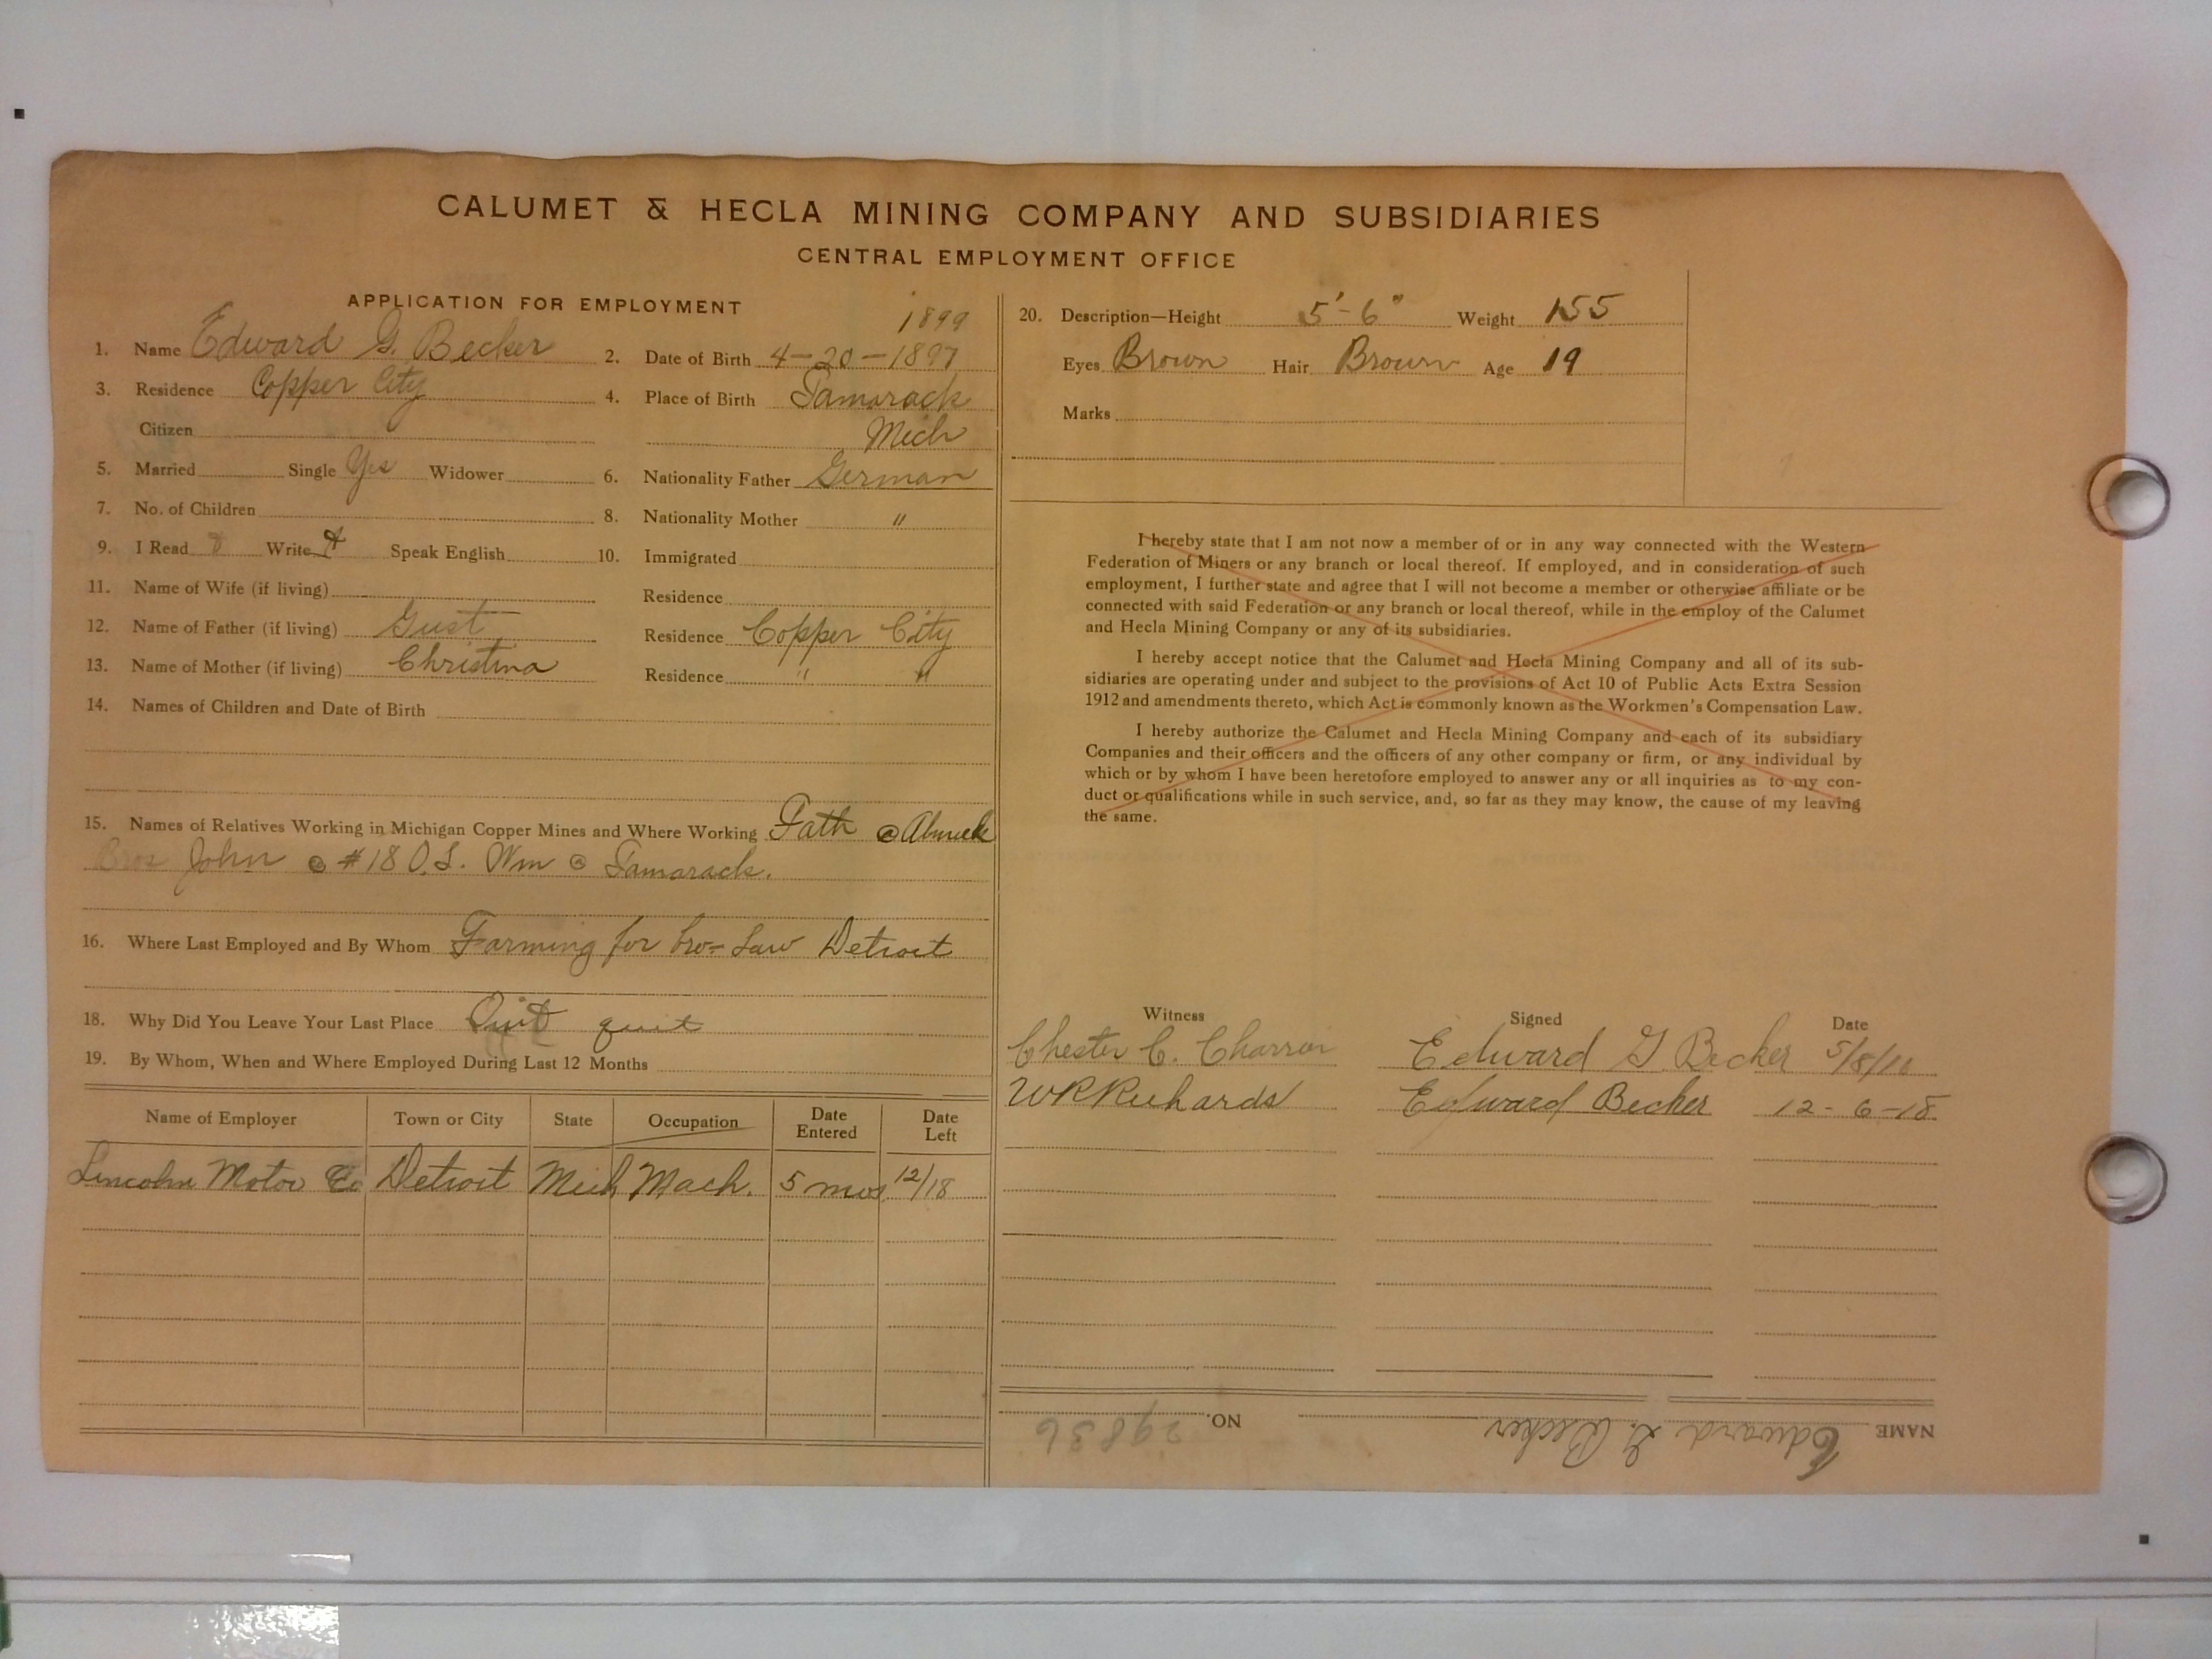 CALUMET & HECLA MINING COMPANY AND SUBSIDIARIES
CENTRAL EMPLOYMENT OFFICE
APPLICATION FOR EMPLOYMENT
1899
1. Name Edward G. Becker 2. Date of Birth 4-20-1897
3. Residence Copper City 4. Place of Birth Tamarack
Citizen Mich
5. Married Single Yes Widower 6. Nationality Father German
7. No. of Children 8. Nationality Mother "
9. I Read Write Speak English 10. Immigrated
11. Name of Wife (if living) Residence
12. Name of Father (if living) Gust Residence Copper City
13. Name of Mother (if living) Christina Residence " "
14. Names of Children and Date of Birth
15. Names of Relatives Working in Michigan Copper Mines and Where Working Fath @ Ahmeek
Bros John @ #18 O.S. Wm @ Tamarack.
16. Where Last Employed and By Whom Farming for bro-Law Detroit
18. Why Did You Leave Your Last Place Quit quit
19. By Whom, When and Where Employed During Last 12 Months
Name of Employer Town or City State Occupation Date Entered Date Left
Lincoln Motor Co Detroit Mich Mach. 5 mos 12/18
20. Description—Height 5'-6" Weight 155
Eyes Brown Hair Brown Age 19
Marks
I hereby state that I am not now a member of or in any way connected with the Western
Federation of Miners or any branch or local thereof. If employed, and in consideration of such
employment, I further state and agree that I will not become a member or otherwise affiliate or be
connected with said Federation or any branch or local thereof, while in the employ of the Calumet
and Hecla Mining Company or any of its subsidiaries.
I hereby accept notice that the Calumet and Hecla Mining Company and all of its sub-
sidiaries are operating under and subject to the provisions of Act 10 of Public Acts Extra Session
1912 and amendments thereto, which Act is commonly known as the Workmen's Compensation Law.
I hereby authorize the Calumet and Hecla Mining Company and each of its subsidiary
Companies and their officers and the officers of any other company or firm, or any individual by
which or by whom I have been heretofore employed to answer any or all inquiries as to my con-
duct or qualifications while in such service, and, so far as they may know, the cause of my leaving
the same.
Witness Signed Date
Chester C. Charron Edward G Becker 5/8/18
WR Richards Edward Becker 12-6-18
NAME Edward G. Becker NO. 29836